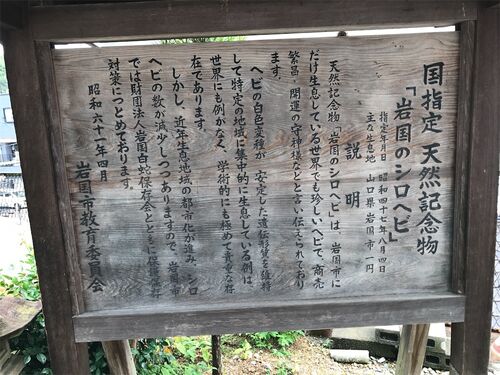 国指定 天然記念物
「岩国のシロヘビ」
指定年月日 昭和四十七年八月四日
主な生息地 山口県岩国市一円
説明
天然記念物「岩国のシロヘビ」は、岩国市に
だけ生息している世界でも珍しいヘビで、商売
繁昌・開運の守神様などと言い伝えられており
ます。
ヘビの白色変種が、安定した遺伝形質を維持
して特定の地域に集中的に生息している例は、
世界にも例がなく、学術的にも極めて貴重な存
在であります。
しかし、近年生息地域の都市化が進み、シロ
ヘビの数が減少しつつありますので、岩国市
では財団法人岩国白蛇保存会とともに保護保存
対策につとめております。
昭和六十一年四月
岩国市教育委員会